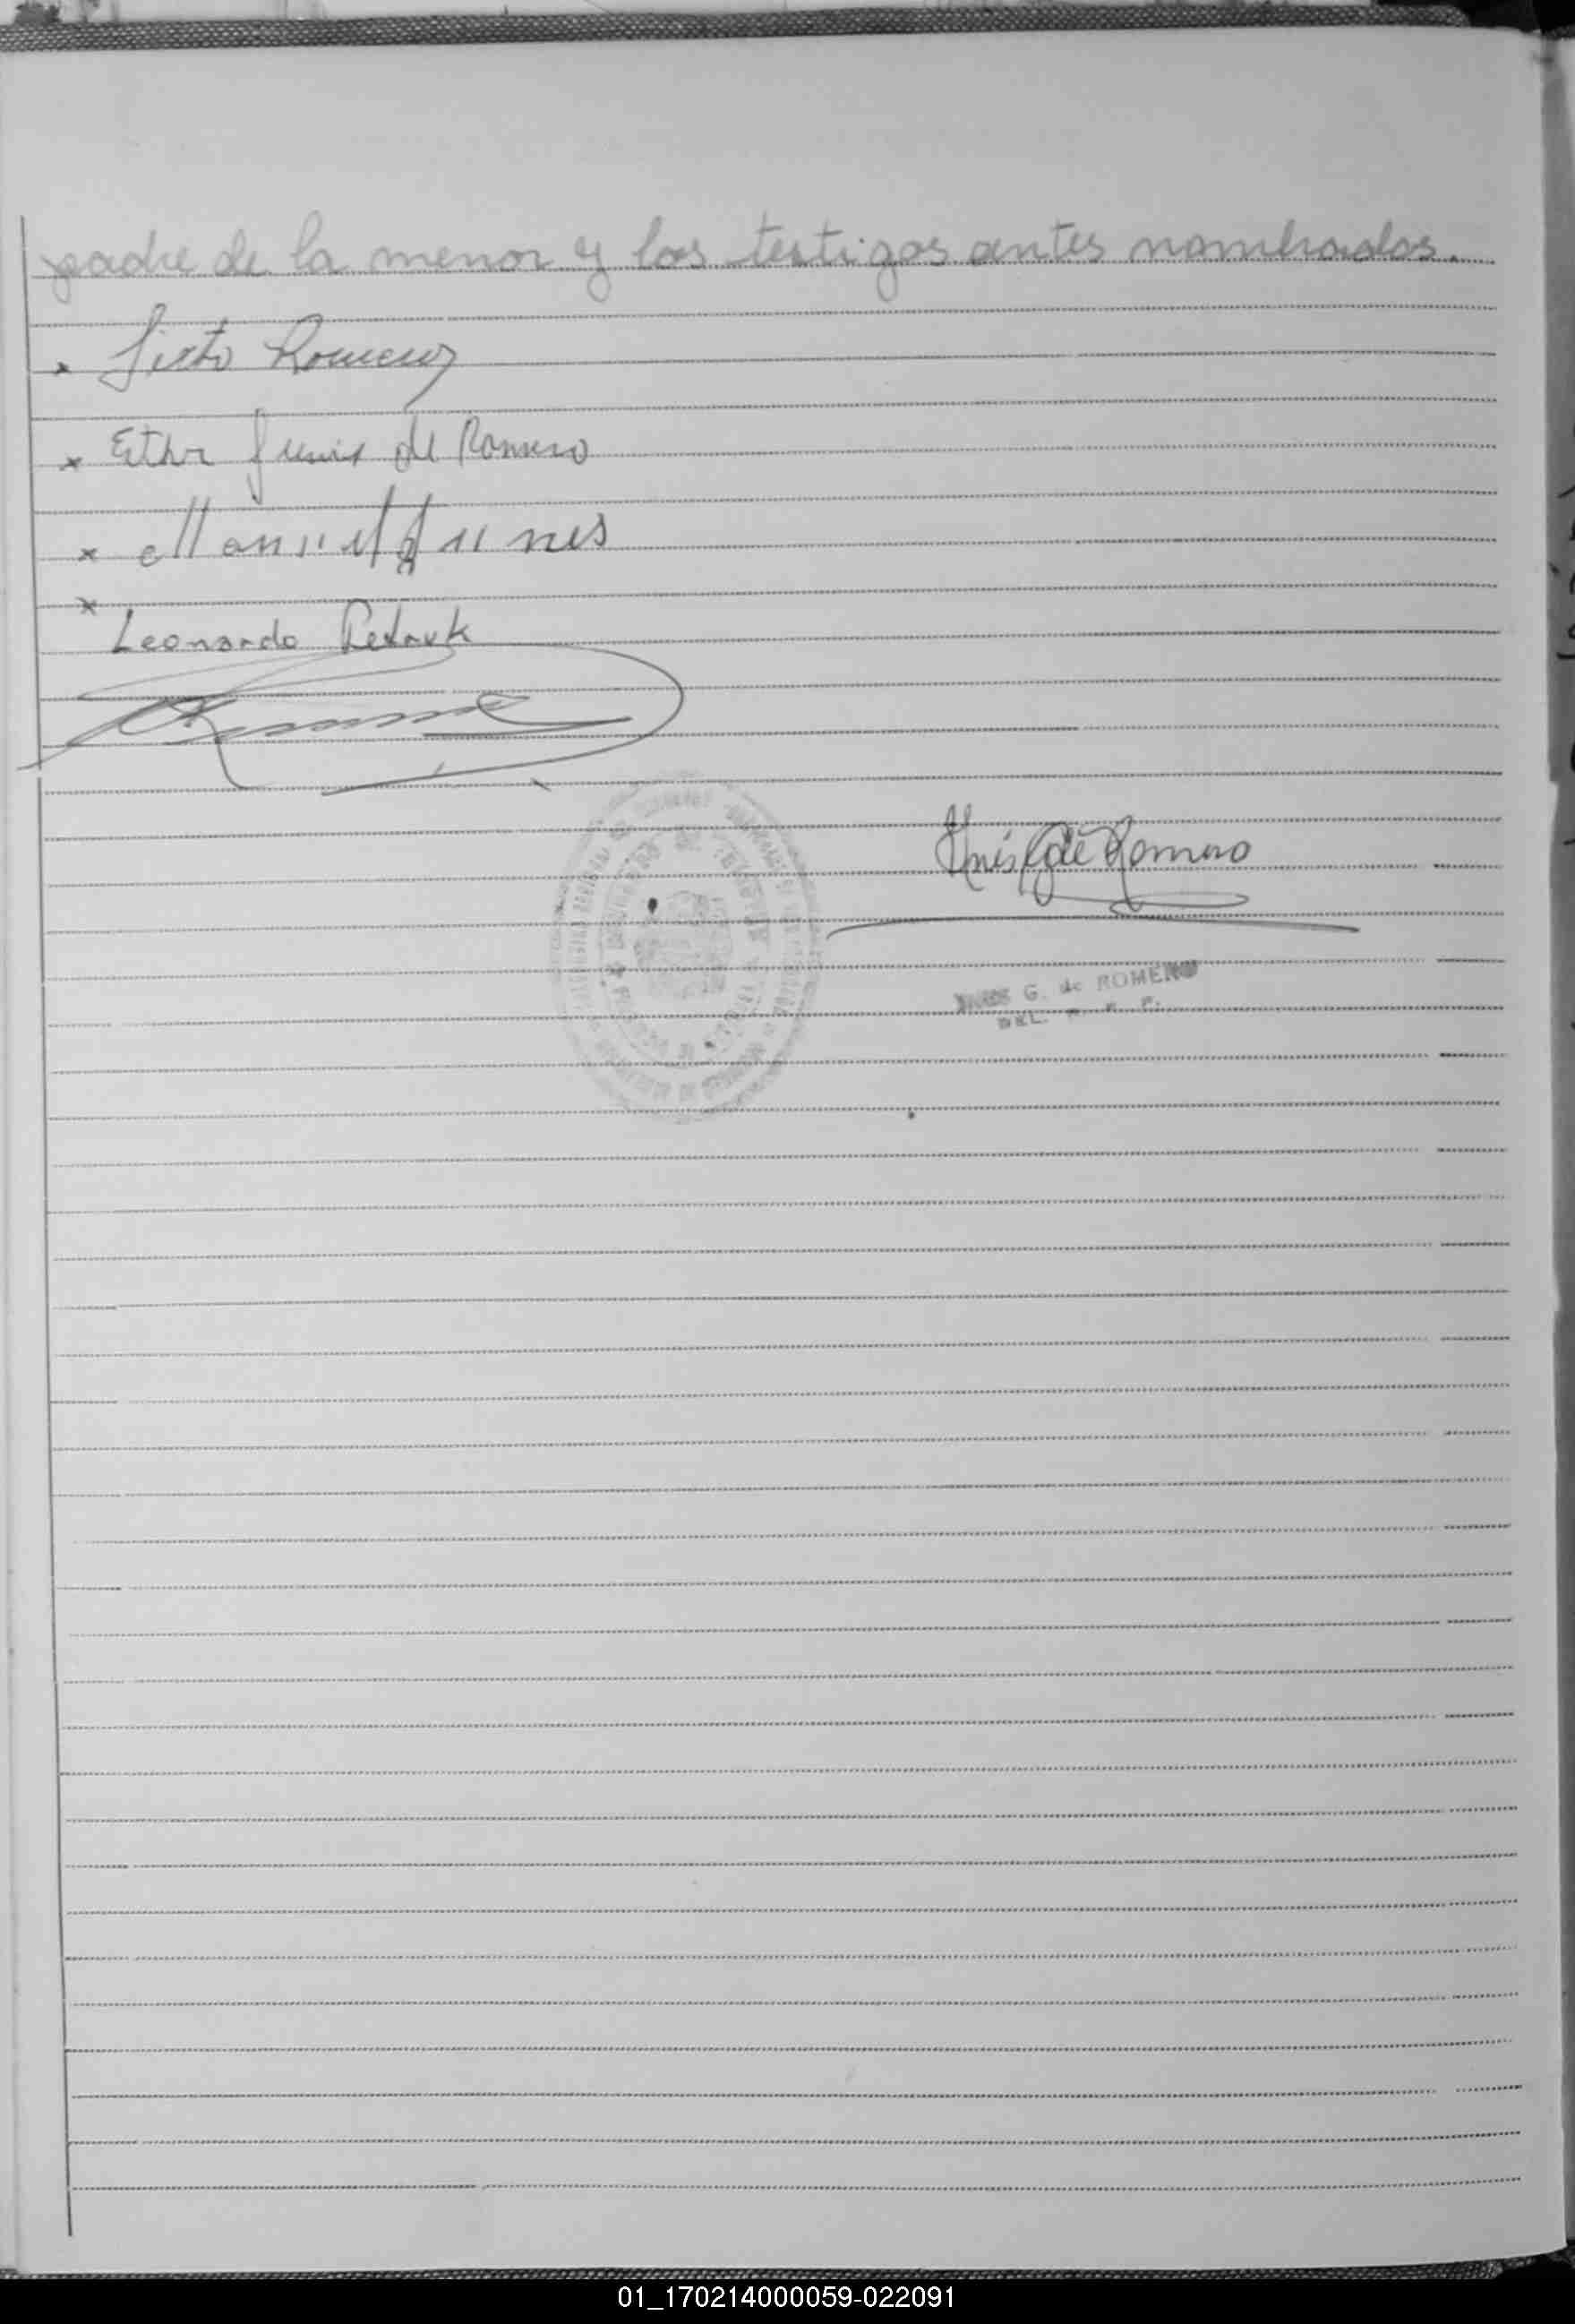 padre de la menor y los testigos antes nombrados.
x Sixto Romero
x Esther Funes de Romero
x Manuel Funes
x
Leonardo
Inés G de Romero
INES G. de ROMERO
DEL. R. P.
01_170214000059-022091